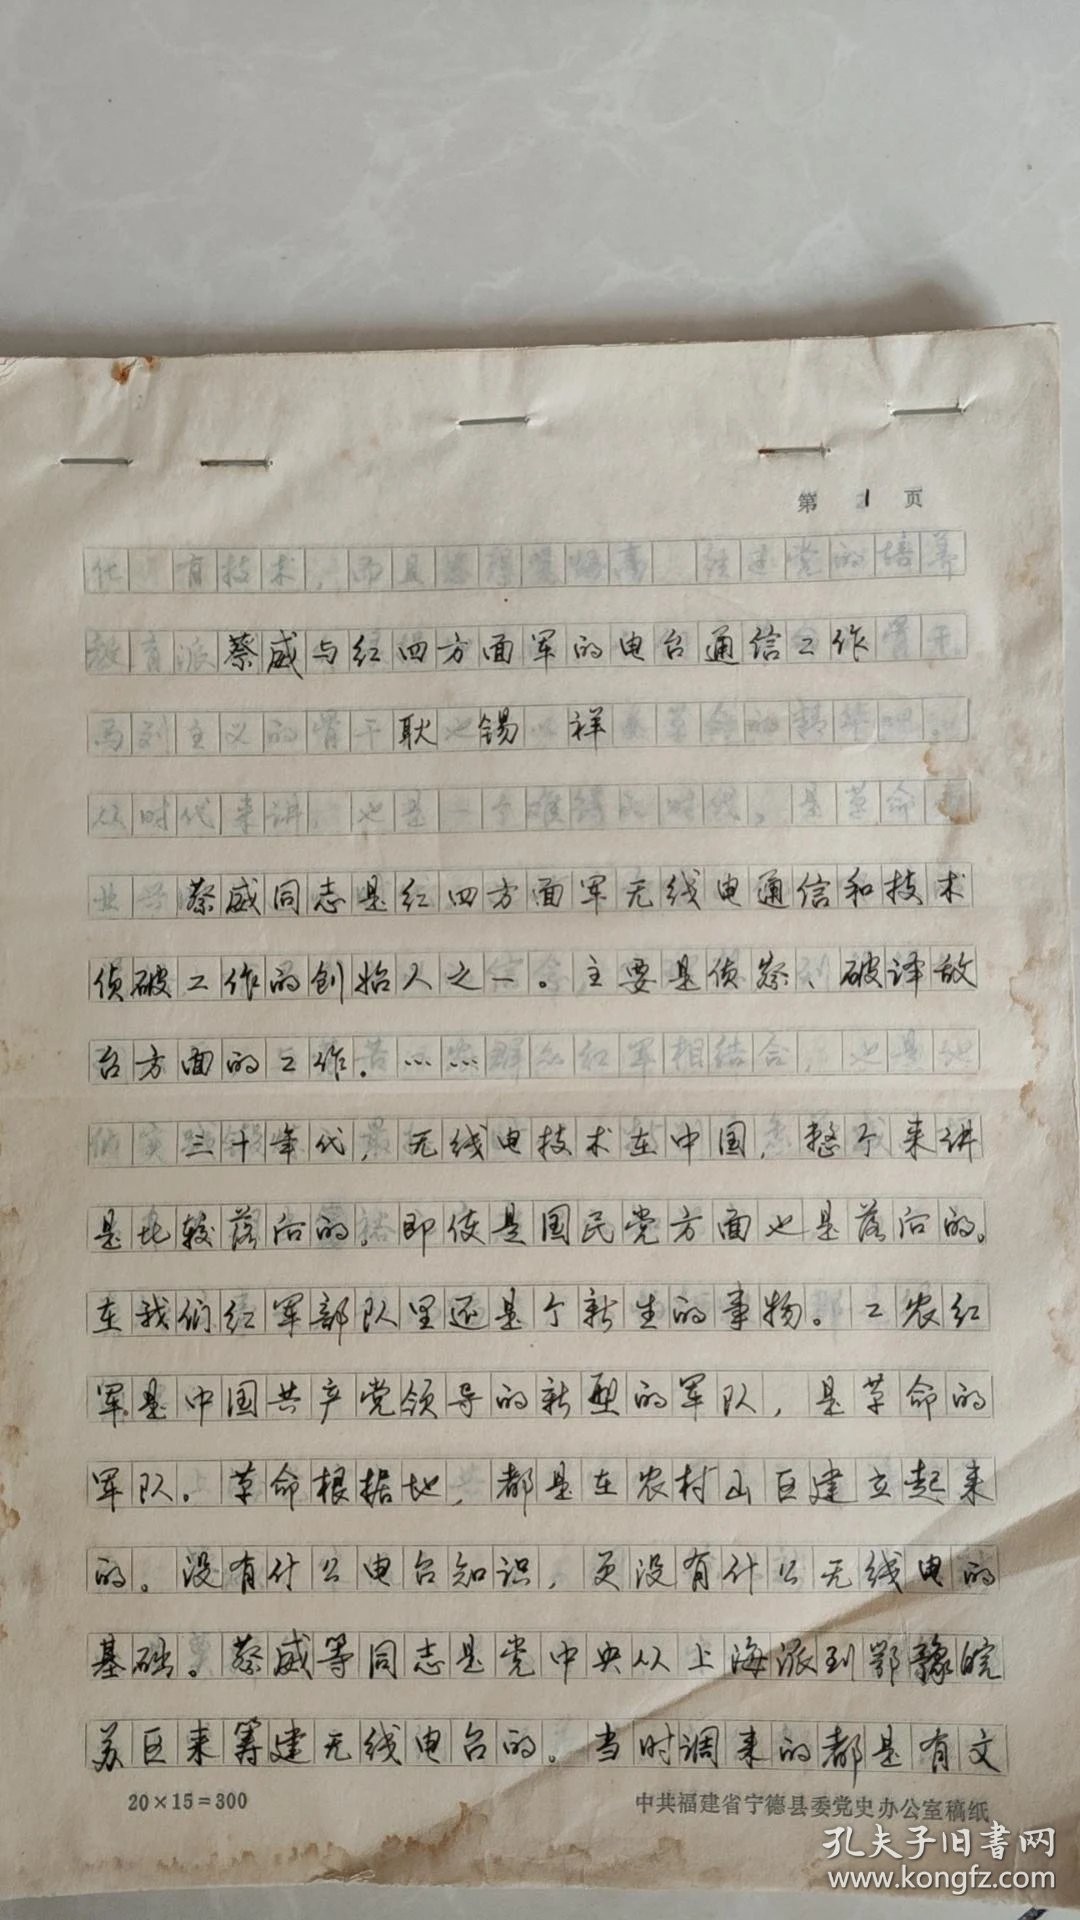 第 1 页
蔡威与红四方面军的电台通信工作
耿锡祥
蔡威同志是红四方面军无线电通信和技术
侦破工作的创始人之一。主要是侦察、破译敌
台方面的工作。……
三十年代，无线电技术在中国，整个来讲
是比较落后的。即使是国民党方面也是落后的。
在我们红军部队里还是个新生的事物。工农红
军是中国共产党领导的新型的军队，是革命的
军队。革命根据地，都是在农村山区建立起来
的。没有什么电台知识，更没有什么无线电的
基础。蔡威等同志是党中央从上海派到鄂豫皖
苏区来筹建无线电台的。当时调来的都是有文
20×15=300
中共福建省宁德县委党史办公室稿纸
孔夫子旧书网
www.kongfz.com